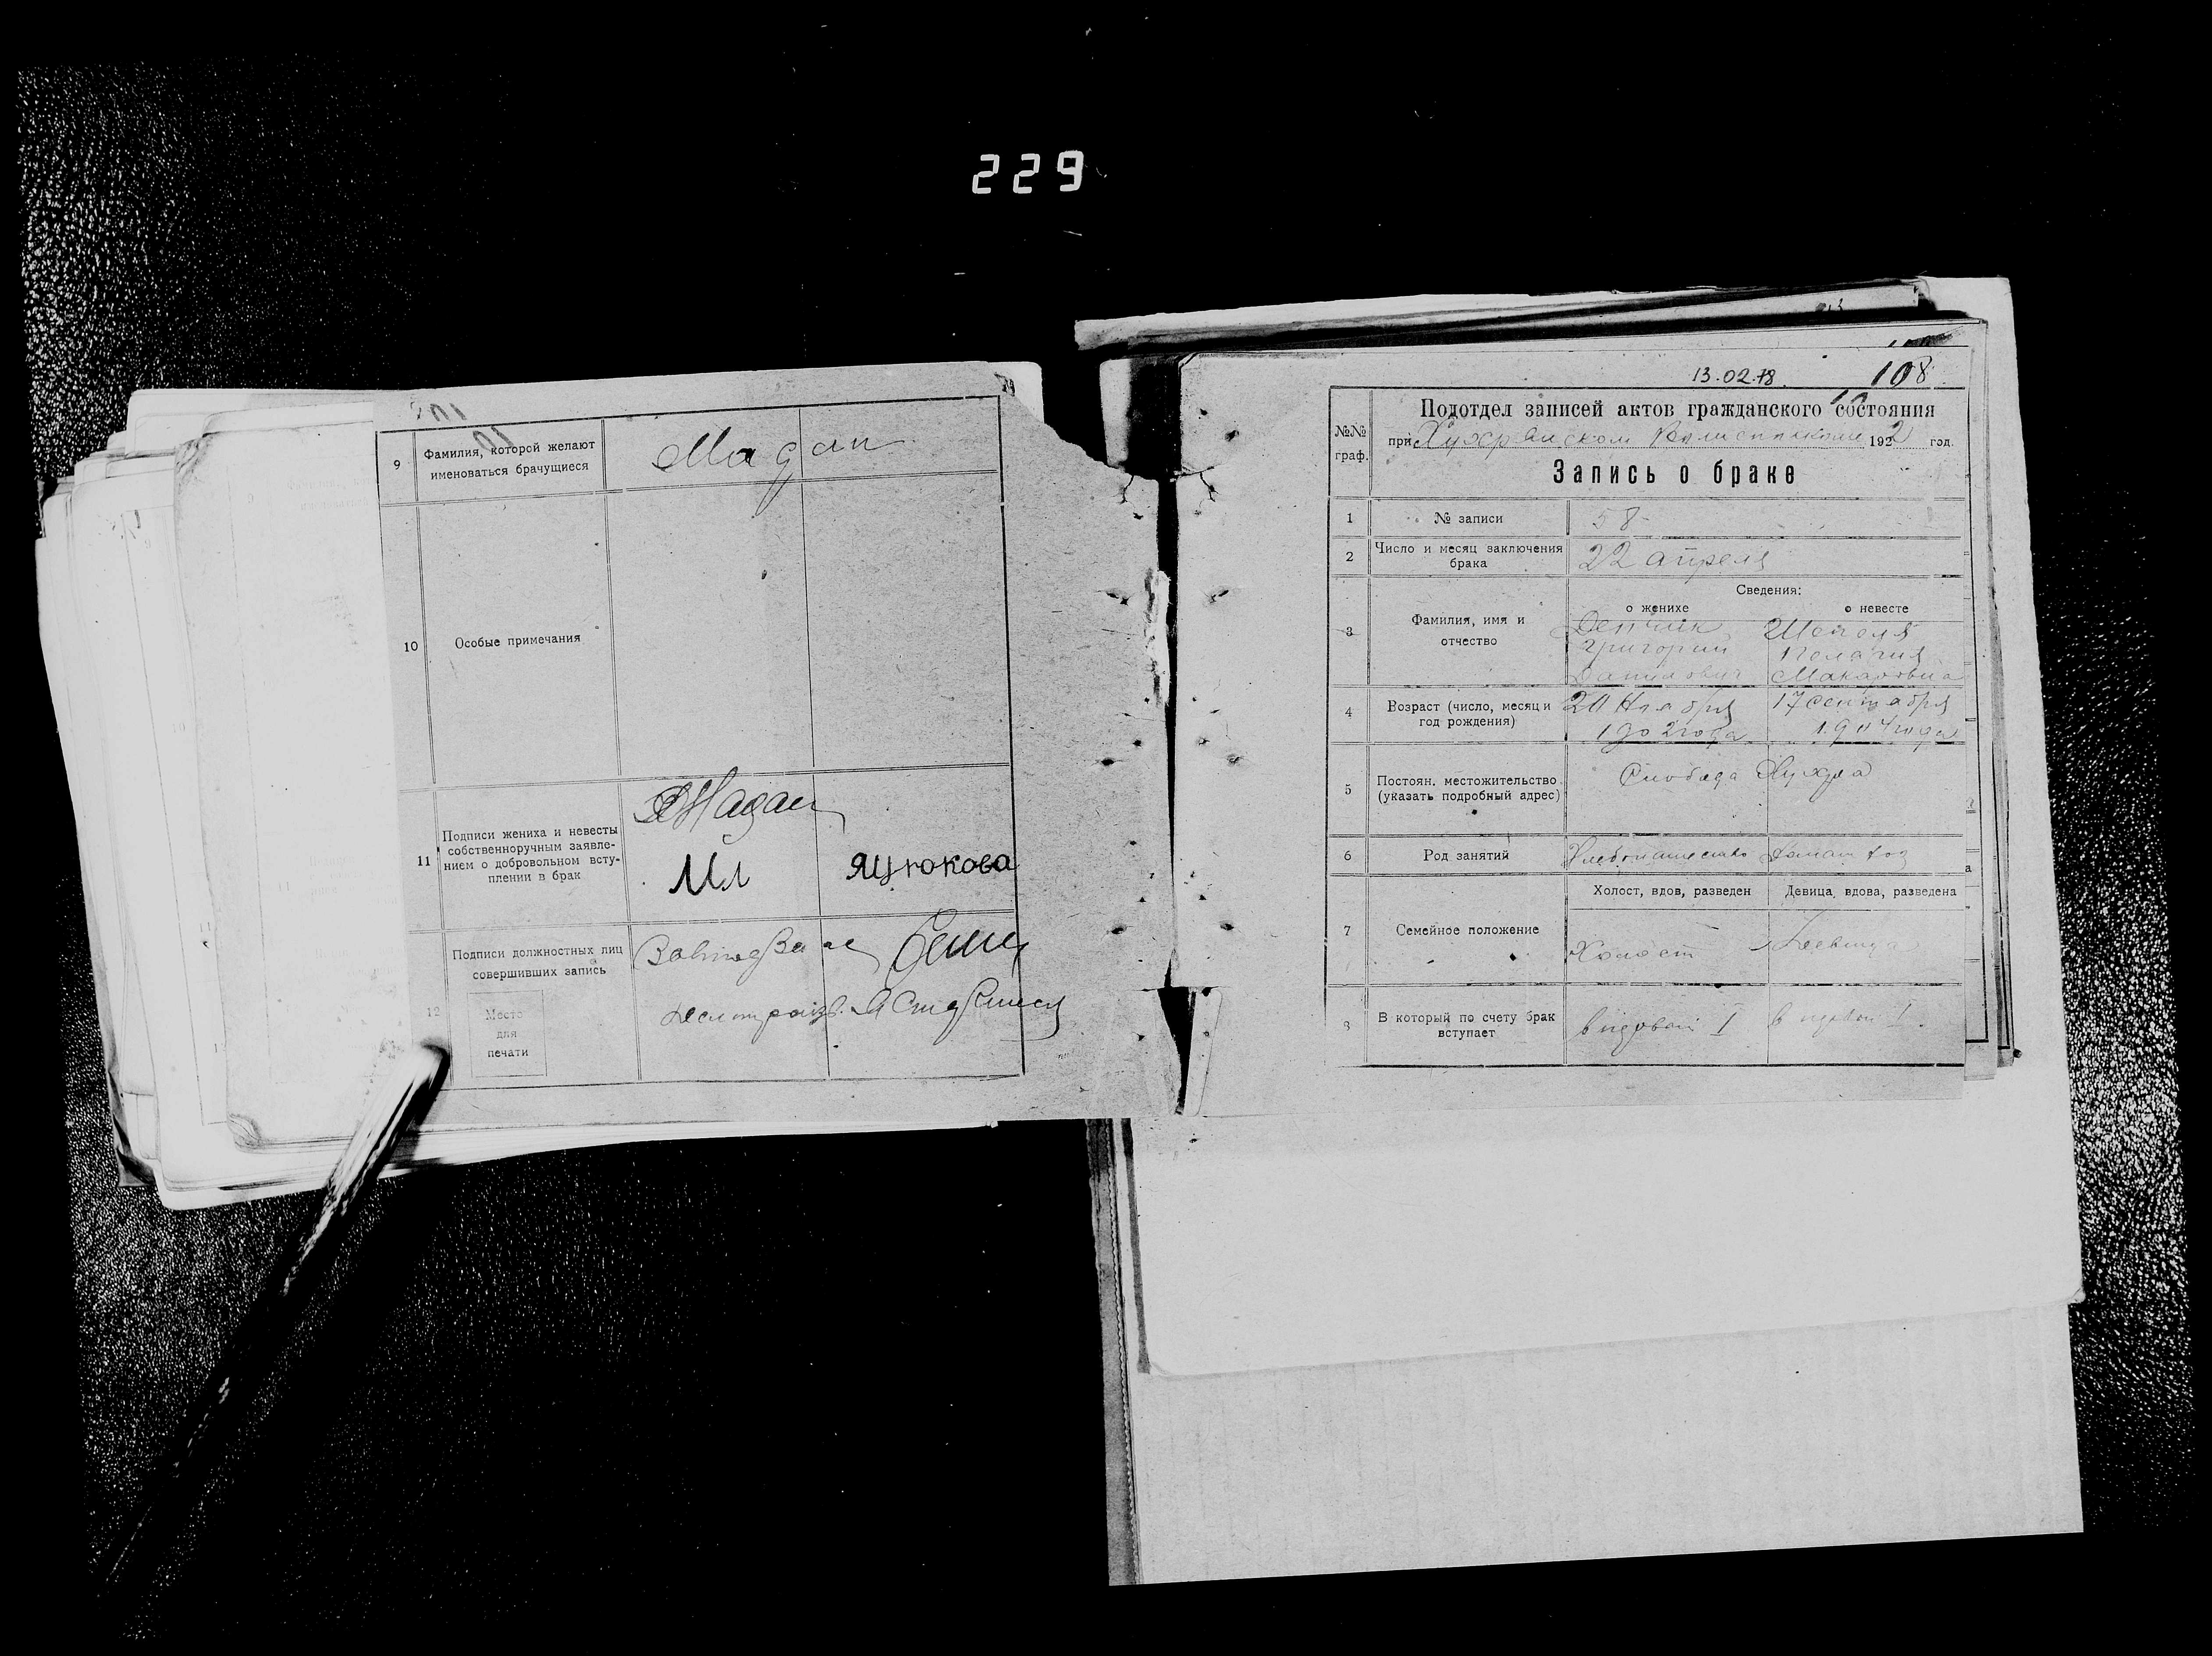 229
9
Фамилия, которой желают
именоваться брачущиеся
Мадан
10
Особые примечания
11
Подписи жениха и невесты
собственноручным заявле-
нием о добровольном всту-
плении в брак
Мадан
Яцюкова
12
Подписи должностных лиц
совершивших запись
Место
для
печати
13.02.78
108
№№
граф.
Подотдел записей актов гражданского состояния
при 1922 год.
Запись о браке
1
№ записи
58
2
Число и месяц заключения
брака
22 апреля
Сведения:
о женихе
о невесте
3
Фамилия, имя и
отчество
Григорий
Данилович
Шепеля
Пелагия
Макаровна
4
Возраст (число, месяц и
год рождения)
20 Ноября
1902 года
17 сентября
1904 года
5
Постоян. местожительство
(указать подробный адрес)
Слобода Хухра
6
Род занятий
Хлебопашество
7
Семейное положение
Холост, вдов, разведен
Девица, вдова, разведена
Холост
Девица
8
В который по счету брак
вступает
в первый I
в первый I